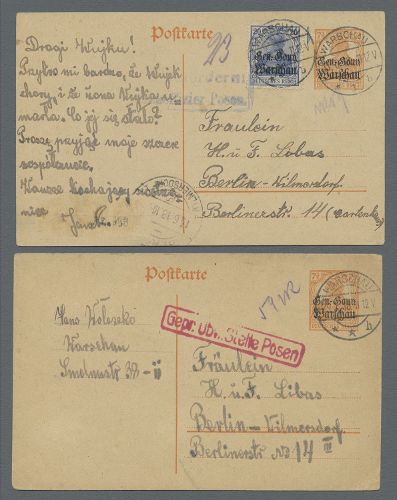 Postkarte
Drogi Wujku!
Przykro mi bardzo, że Wujek
chory, i że żona Wujka u-
marła. Co jej się stało?
Proszę przyjąć moje szczere
współczucie.
Kochający
23
Posen
WARSCHAU
Gen.-Gouv.
Warschau
Gen.-Gouv.
Warschau
Fräulein
H. u. F. Libas
Berlin-Wilmersdorf.
Berlinerstr. 14 (Gartenhaus)
Postkarte
Hans Woloszko
Warschau
Smolnastr 39-ii
Gepr. Übw. Stelle Posen
WARSCHAU
Gen.-Gouv.
Warschau
Fräulein
H. u. F. Libas
Berlin-Wilmersdorf.
Berlinerstr No 14 III